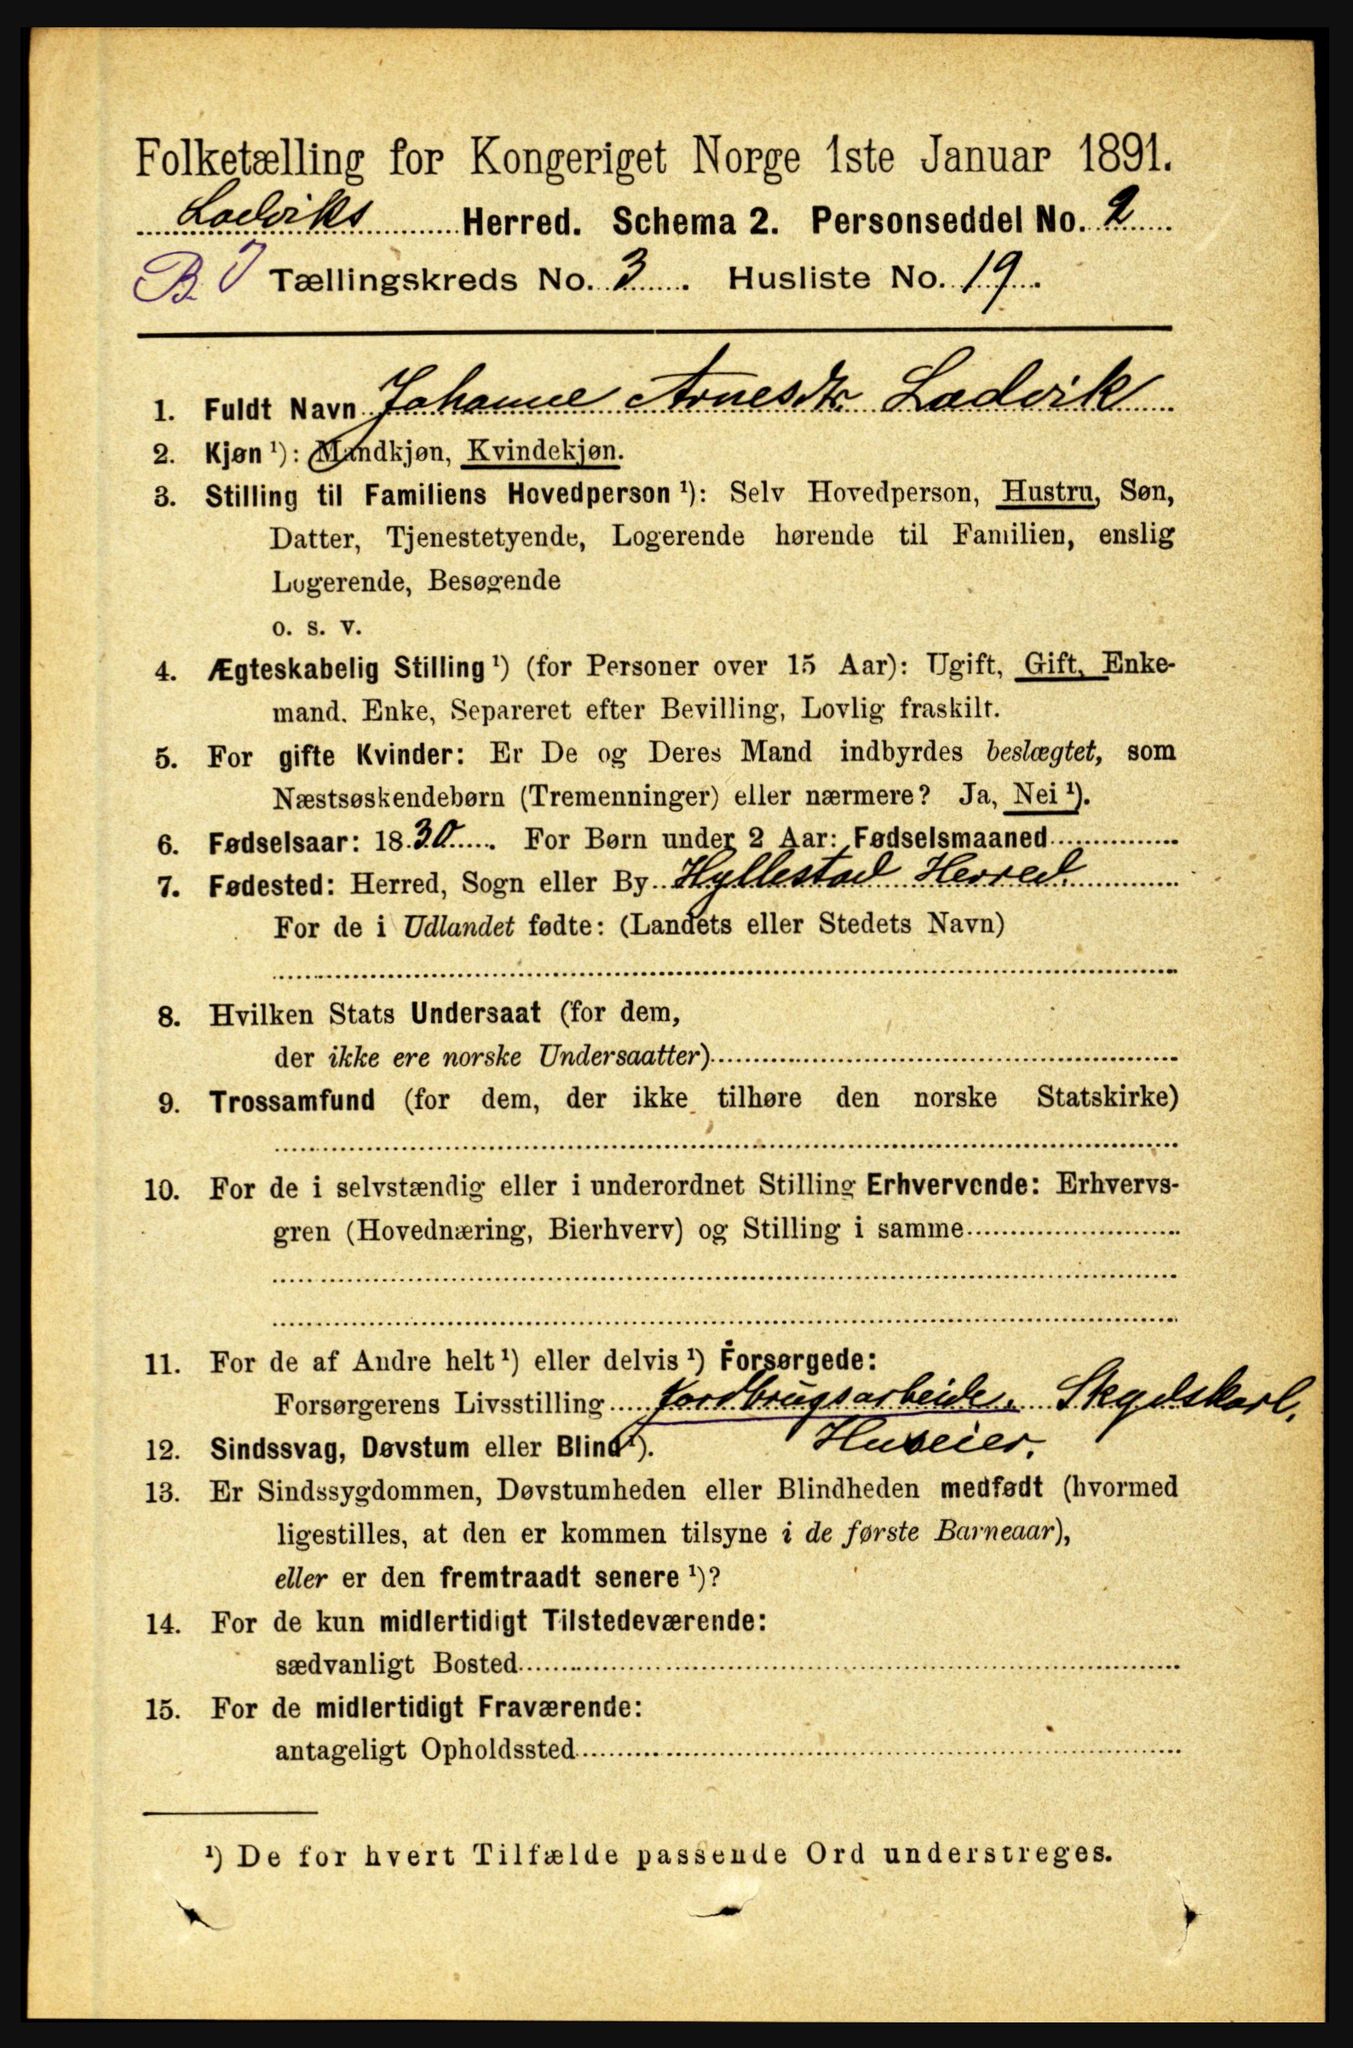 Folketælling for Kongeriget Norge 1ste Januar 1891.
Ladviks Herred. Schema 2. Personseddel No. 2
B. J Tællingskreds No. 3. Husliste No. 19.
1. Fuldt Navn Johanne Arnesdtr. Ladvik
2. Kjøn ¹): Mandkjøn, Kvindekjøn.
3. Stilling til Familiens Hovedperson ¹): Selv Hovedperson, Hustru, Søn,
Datter, Tjenestetyende, Logerende hørende til Familien, enslig
Logerende, Besøgende
o. s. v.
4. Ægteskabelig Stilling ¹) (for Personer over 15 Aar): Ugift, Gift, Enke-
mand, Enke, Separeret efter Bevilling, Lovlig fraskilt.
5. For gifte Kvinder: Er De og Deres Mand indbyrdes beslægtet, som
Næstsøskendebørn (Tremenninger) eller nærmere? Ja, Nei ¹).
6. Fødselsaar: 1830. For Børn under 2 Aar: Fødselsmaaned
7. Fødested: Herred, Sogn eller By Hyllestad Herred.
For de i Udlandet fødte: (Landets eller Stedets Navn)
8. Hvilken Stats Undersaat (for dem,
der ikke ere norske Undersaatter)
9. Trossamfund (for dem, der ikke tilhøre den norske Statskirke)
10. For de i selvstændig eller i underordnet Stilling Erhvervende: Erhvervs-
gren (Hovednæring, Bierhverv) og Stilling i samme
11. For de af Andre helt ¹) eller delvis ¹) Forsørgede:
Forsørgerens Livsstilling Jordbrugsarbeider. Skydskarl,
Huseier.
12. Sindssvag, Døvstum eller Blind ¹).
13. Er Sindssygdommen, Døvstumheden eller Blindheden medfødt (hvormed
ligestilles, at den er kommen tilsyne i de første Barneaar),
eller er den fremtraadt senere ¹)?
14. For de kun midlertidigt Tilstedeværende:
sædvanligt Bosted
15. For de midlertidigt Fraværende:
antageligt Opholdssted
¹) De for hvert Tilfælde passende Ord understreges.